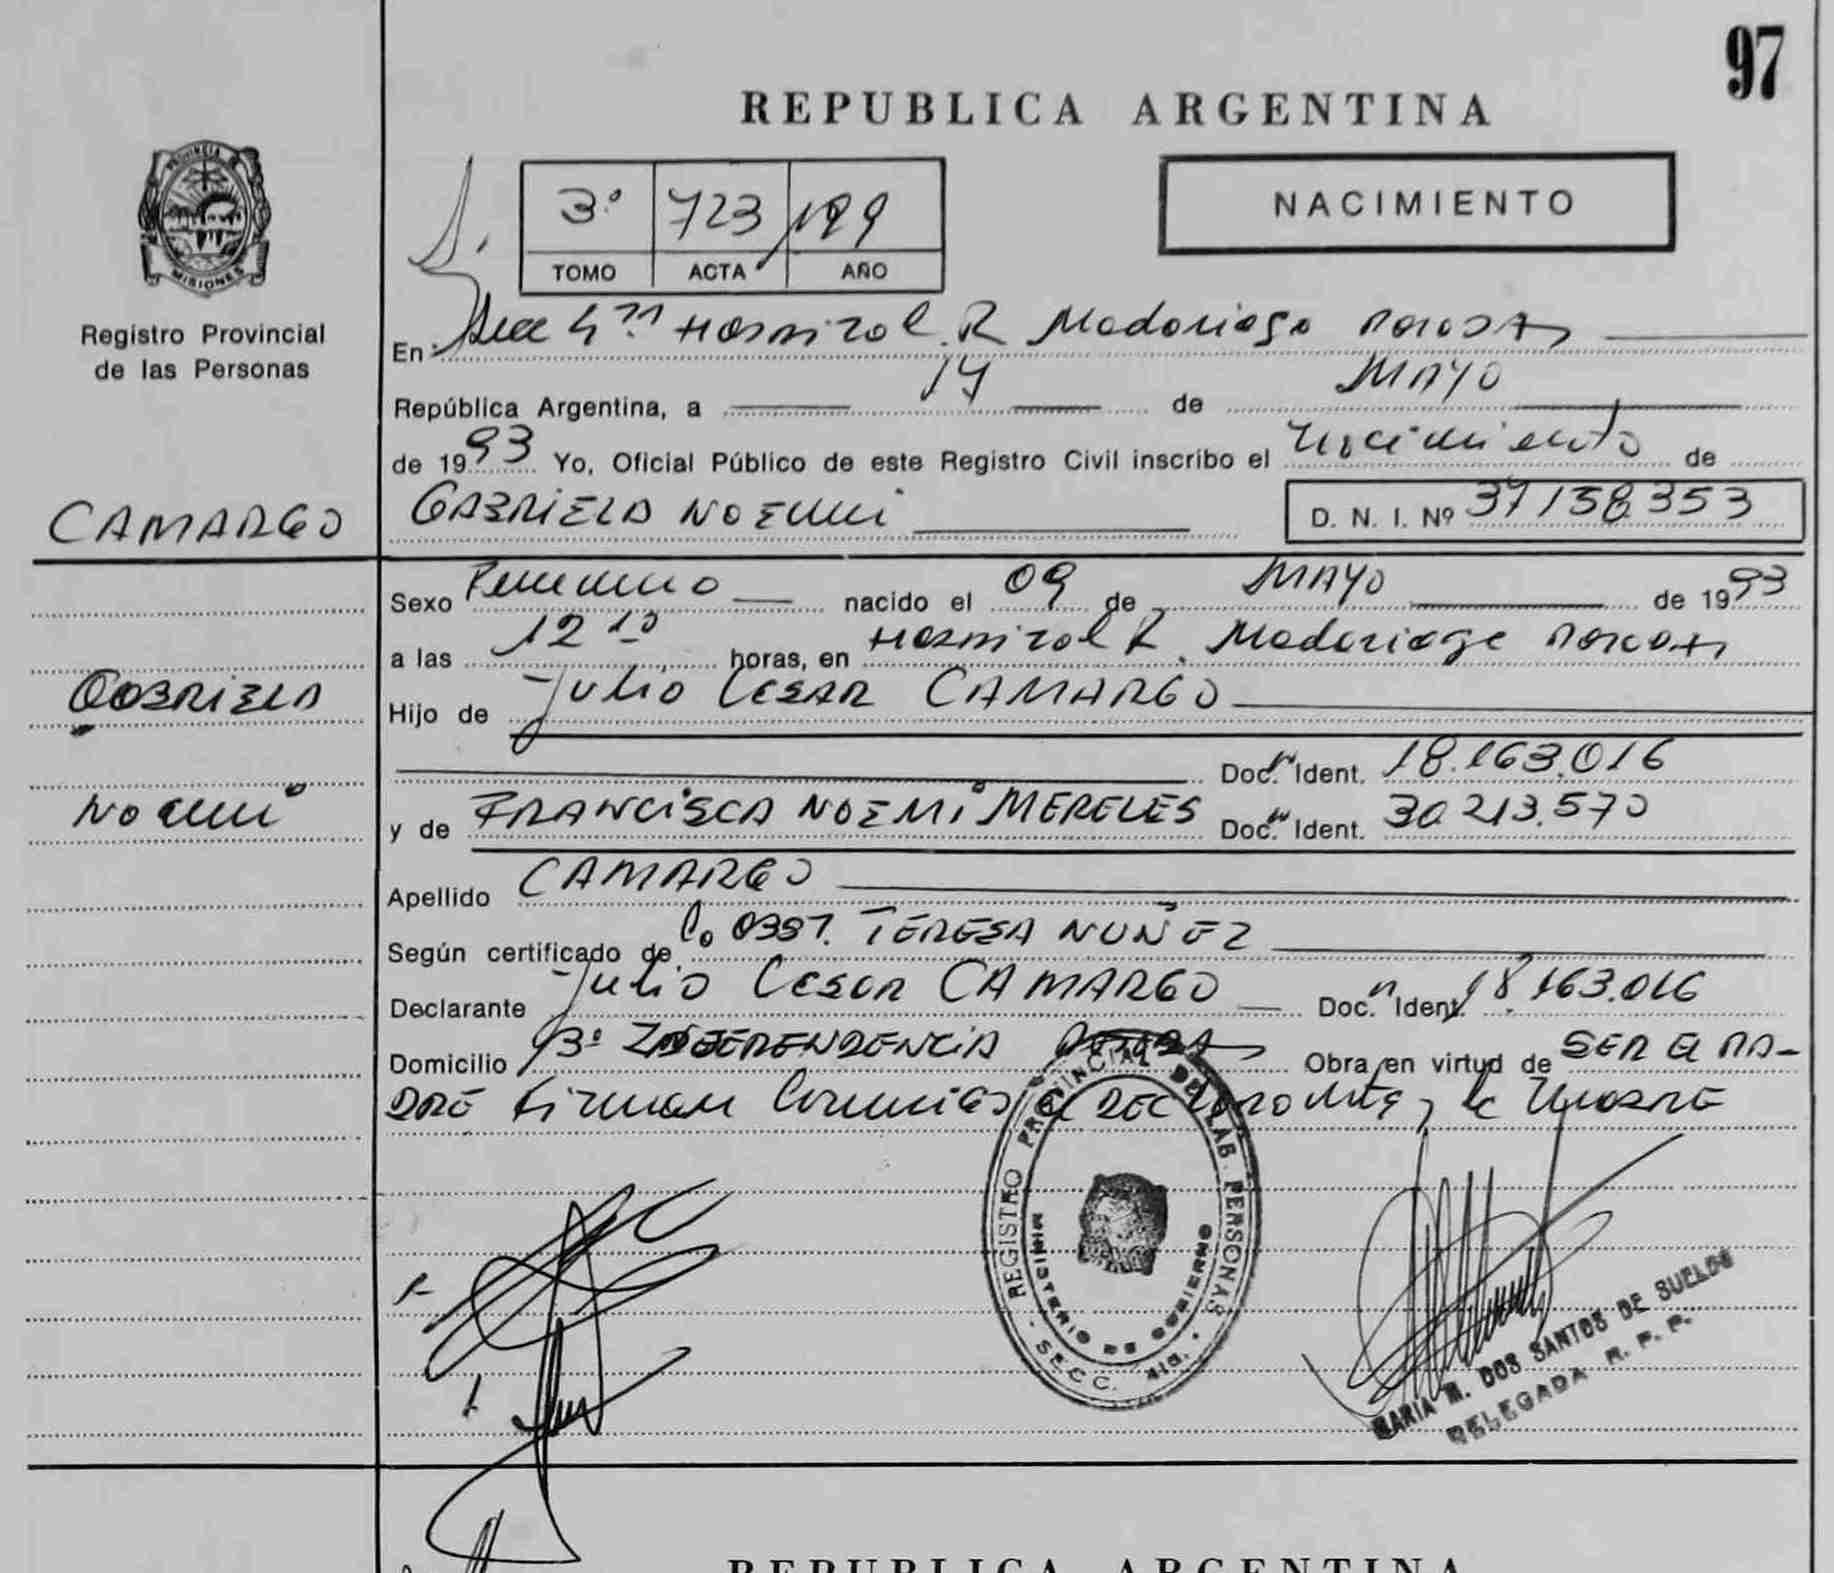 97
REPUBLICA ARGENTINA
PROVINCIA DE
MISIONES
Registro Provincial
de las Personas
3º 723 199
TOMO ACTA AÑO
NACIMIENTO
En Secc 4ta Hospital R Madariaga Posadas
República Argentina, a 14 de MAYO
de 1993 Yo, Oficial Público de este Registro Civil inscribo el nacimiento de
CAMARGO
GABRIELA NOEMI
D. N. I. Nº 37158353
Sexo Femenino nacido el 09 de MAYO de 1993
a las 12 10 horas, en Hospital R. Madariaga Posadas
GABRIELA
Hijo de Julio CESAR CAMARGO
Doc. Ident. 18.163.016
NOEMI
y de FRANCISCA NOEMI MERELES Doc. Ident. 30.213.570
Apellido CAMARGO
Según certificado de OBST. TERESA NUÑEZ
Declarante Julio CESAR CAMARGO Doc. Ident. 18.163.016
Domicilio INDEPENDENCIA Obra en virtud de SER EL PA-
DRE Firman conmigo el DECLARANTE y la MADRE
REGISTRO PROVINCIAL DE LAS PERSONAS
MINISTERIO DE GOBIERNO
SECC. 4ta.
MARIA M. DOS SANTOS DE SUELDO
DELEGADA R. P. P.
REPUBLICA ARGENTINA